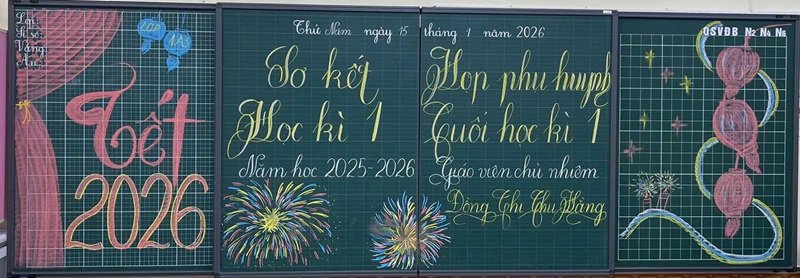 Lớp:
Sĩ số:
Vắng:
Ăn:
LỚP
1A3
Tết
2026
Thứ Năm ngày 15 tháng 1 năm 2026
Sơ kết
Học kì 1
Năm học 2025-2026
Họp phụ huynh
Cuối học kì 1
Giáo viên chủ nhiệm
Đồng Thị Thu Hằng
OSVĐB N2 N4 N6